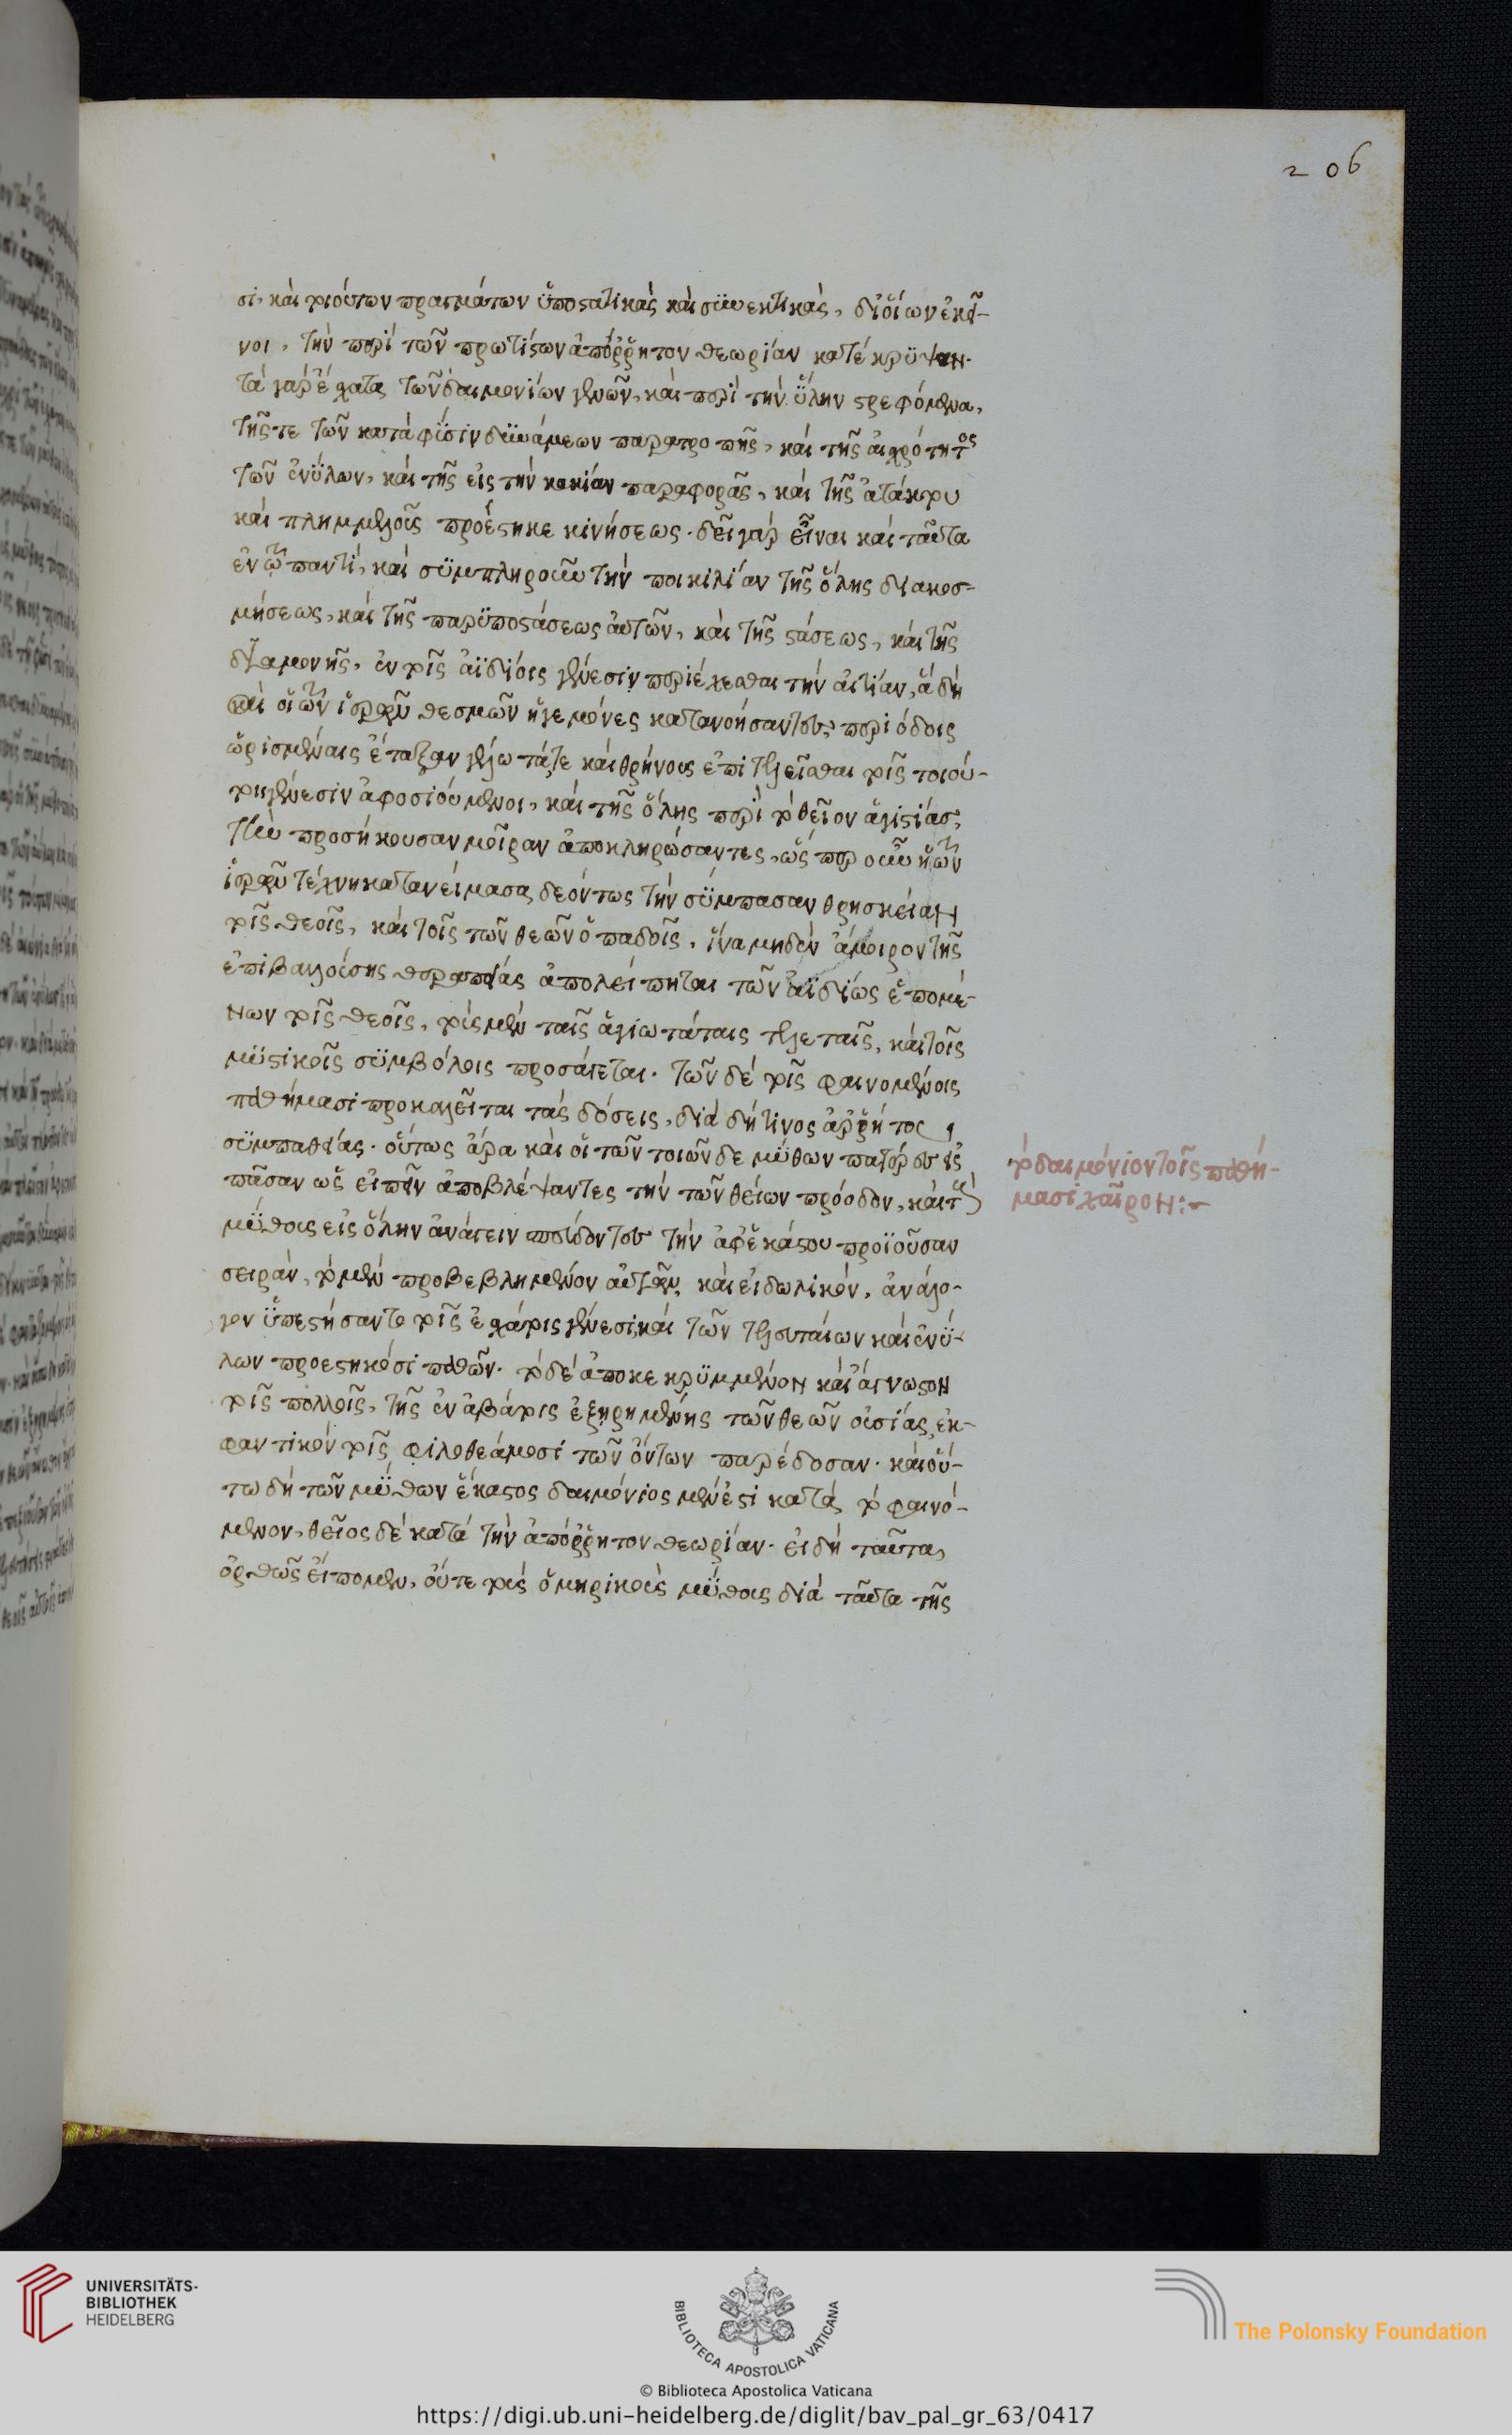 206
σι, καὶ τοιούτων πραγμάτων ὑποστατικὰς καὶ συνεκτικὰς, δι' οἵων ἐκεῖ-
νοι, τὴν περὶ τῶν πρωτίστων ἀπόρρητον θεωρίαν κατέκρυψαν.
τὰ γὰρ ἔσχατα τῶν δαιμονίων γενῶν, καὶ περὶ τὴν ὕλην στρεφόμενα,
τῆς τε τῶν κατὰ φύσιν δυνάμεων παρατροπῆς, καὶ τῆς αἰσχρότητος
τῶν ἐνύλων, καὶ τῆς εἰς τὴν κακίαν παραφορᾶς, καὶ τῆς ἀτάκτου
καὶ πλημμελοῦς προέστηκε κινήσεως. δεῖ γὰρ εἶναι καὶ ταῦτα
ἐν τῷ παντί, καὶ συμπληροῦν τὴν ποικιλίαν τῆς ὅλης διακοσ-
μήσεως, καὶ τῆς παρυποστάσεως αὐτῶν, καὶ τῆς στάσεως, καὶ τῆς
διαμονῆς, ἐν τοῖς ἀϊδίοις γένεσιν περιέχεσθαι τὴν αἰτίαν, ἃ δὴ
καὶ οἱ τῶν ἱερῶν θεσμῶν ἡγεμόνες κατανοήσαντες περιόδοις
ὡρισμέναις ἔταξαν γέλωτάς τε καὶ θρήνους ἐπιτελεῖσθαι τοῖς τοιού-
τοις γένεσιν ἀφοσιούμενοι, καὶ τῆς ὅλης περὶ τὸ θεῖον ἁγιστίας,
τὴν προσήκουσαν μοῖραν ἀποκληρώσαντες, ὥσπερ οὖν ἡ τῶν
ἱερῶν τέχνη κατανείμασα δεόντως τὴν σύμπασαν θρησκείαν
τοῖς θεοῖς, καὶ τοῖς τῶν θεῶν ὀπαδοῖς, ἵνα μηδὲν ἄμοιρον τῆς
ἐπιβαλλούσης θεραπείας ἀπολείπηται τῶν ἀϊδίως ἑπομέ-
νων τοῖς θεοῖς, τοὺς μὲν ταῖς ἁγιωτάταις τελεταῖς, καὶ τοῖς
μυστικοῖς συμβόλοις προσάγεται. τῶν δὲ τοῖς φαινομένοις
παθήμασι προκαλεῖται τὰς δόσεις, διὰ δή τινος ἀρρήτου
συμπαθείας. οὕτως ἄρα καὶ οἱ τῶν τοιῶνδε μύθων πατέρες εἰς
πᾶσαν ὡς εἰπεῖν ἀποβλέψαντες τὴν τῶν θείων πρόοδον, καὶ τοὺς
μύθους εἰς ὅλην ἀνάγειν σπεύδοντες τὴν ἀφ' ἑκάστου προϊοῦσαν
σειρὰν, τὸ μὲν προβεβλημένον αὐτῶν, καὶ εἰδωλικὸν, ἀνάλο-
γον ὑπεστήσαντο τοῖς ἐσχάτοις γένεσι, καὶ τῶν τελευταίων καὶ ἐνύ-
λων προεστηκόσι παθῶν. τὸ δὲ ἀποκεκρυμμένον καὶ ἄγνωστον
τοῖς πολλοῖς, τῆς ἐν ἀβάτοις ἐξῃρημένης τῶν θεῶν οὐσίας, ἐκ-
φαντικὸν τοῖς φιλοθεάμοσι τῶν ὄντων παρέδοσαν. καὶ οὕ-
τω δὴ τῶν μύθων ἕκαστος δαιμόνιος μέν ἐστι κατὰ τὸ φαινό-
μενον, θεῖος δὲ κατὰ τὴν ἀπόρρητον θεωρίαν. εἰ δὴ ταῦτα
ὀρθῶς εἴπομεν, οὔτε τοὺς ὁμηρικοὺς μύθους διὰ ταῦτα τῆς
τὸ δαιμόνιον τοῖς παθή-
μασι χαῖρον:-
UNIVERSITÄTS-
BIBLIOTHEK
HEIDELBERG
BIBLIOTECA APOSTOLICA VATICANA
The Polonsky Foundation
© Biblioteca Apostolica Vaticana
https://digi.ub.uni-heidelberg.de/diglit/bav_pal_gr_63/0417